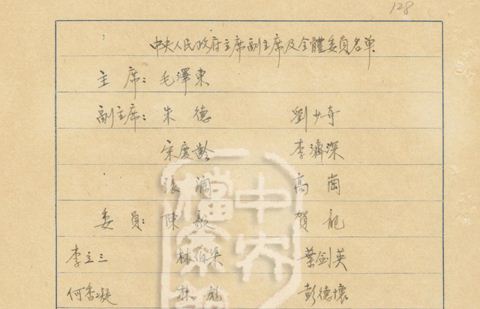 128
中央人民政府主席副主席及全體委員名單
主席：毛澤東
副主席：朱德 劉少奇
宋慶齡 李濟深
瀾 高崗
委員：陳毅 賀龍
李立三 林伯渠 葉劍英
何香凝 林彪 彭德懷
中央檔案館